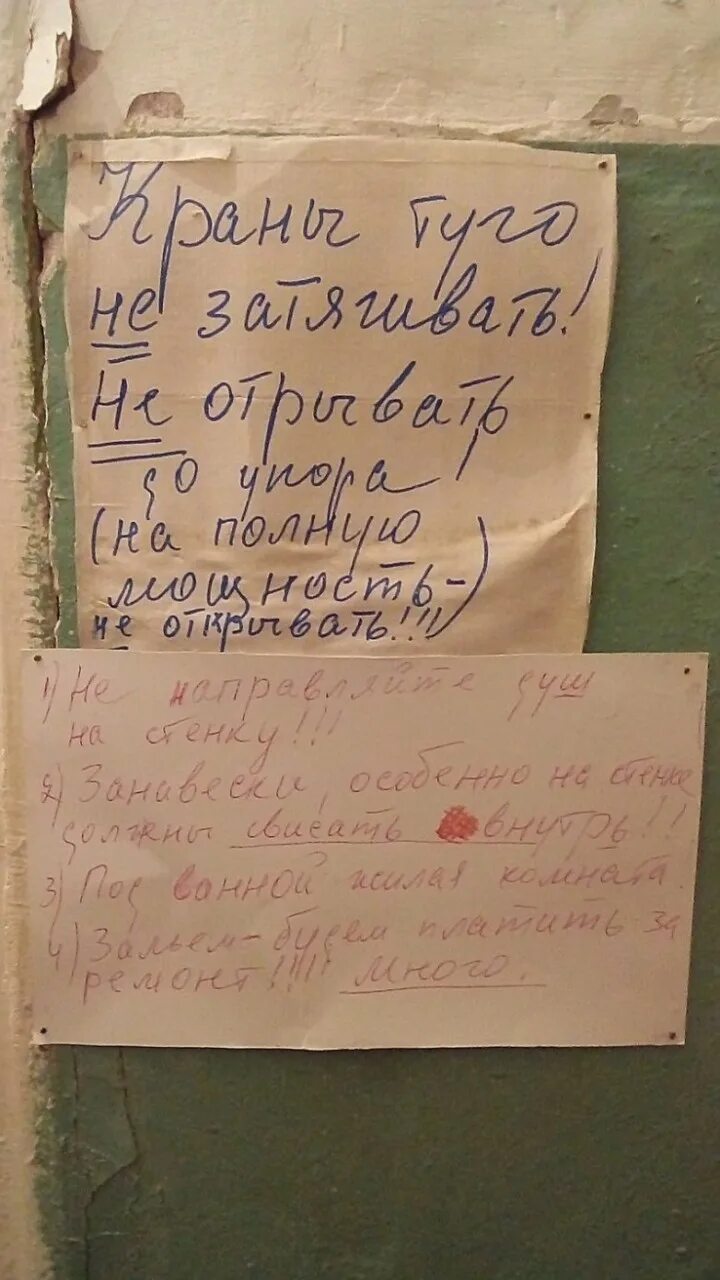 Краны туго
не затягивать!
Не отрывать
до упора!
(на полную
мощность-)
не открывать!!!!
1) Не направляйте душ
на стенку!!!
2) Занавески, особенно на стенке
должны свисать внутрь!!
3) Под ванной жилая комната.
4) Зальем-будем платить за
ремонт!!!!! много.